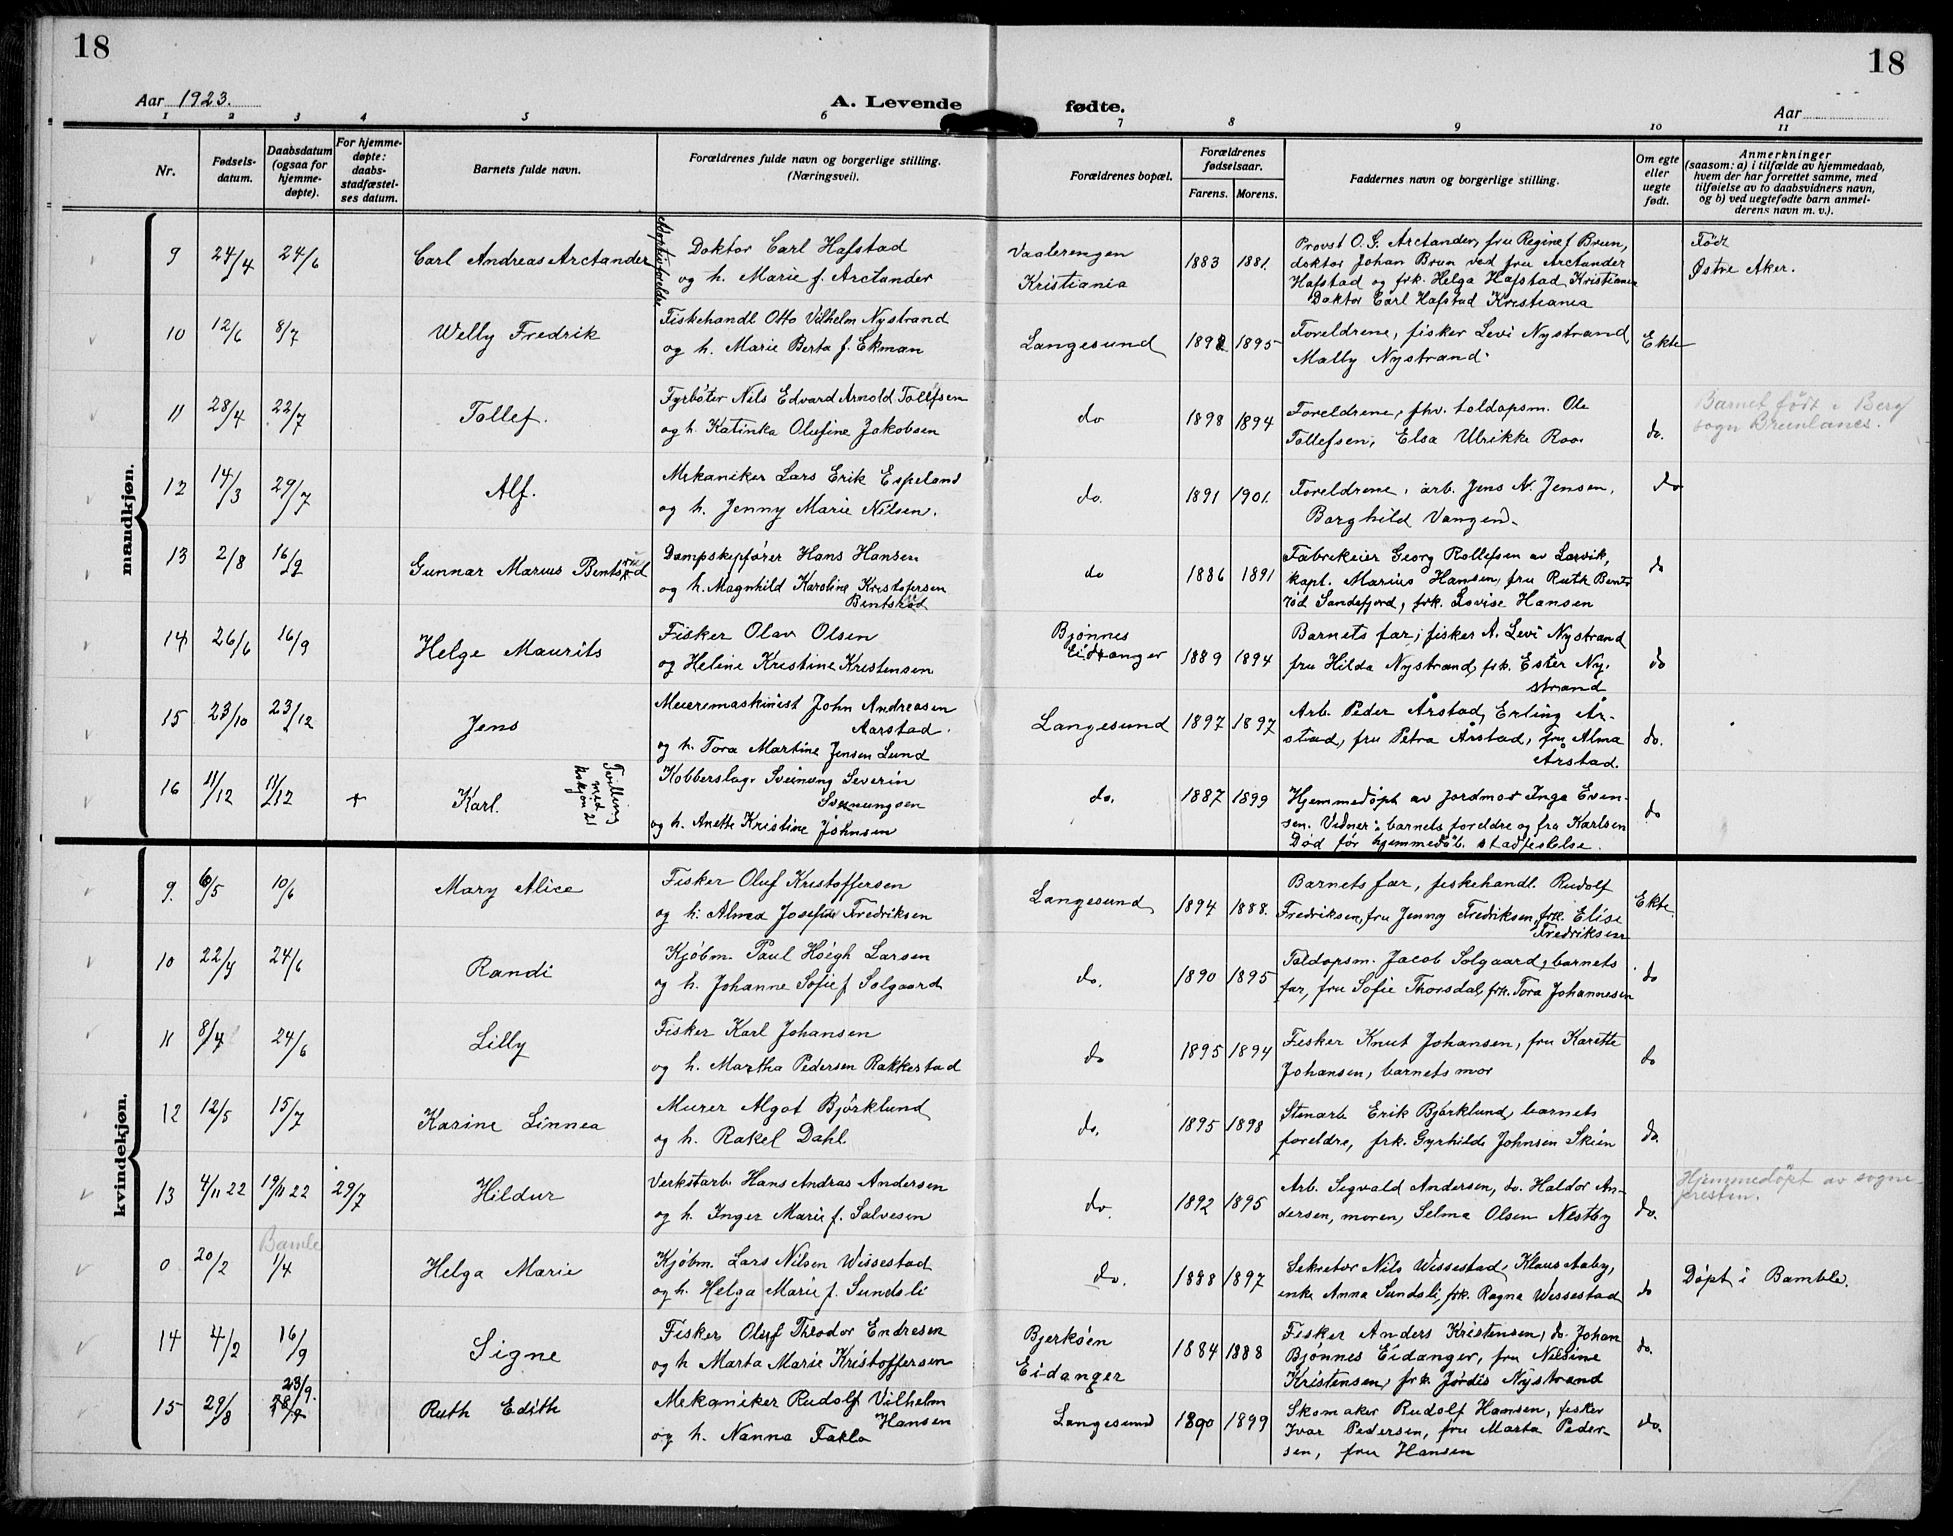 18
18
Aar 1923.
A. Levende fødte.
Aar
1 2 3 4 5 6 7 8 9 10 11
Nr.
Fødsels-
datum.
Daabsdatum
(ogsaa for
hjemme-
døpte).
For hjemme-
døpte:
daabs-
stadfæstel-
ses datum.
Barnets fulde navn.
Forældrenes fulde navn og borgerlige stilling.
(Næringsvei).
Forældrenes bopæl.
Forældrenes
fødselsaar.
Farens. Morens.
Faddernes navn og borgerlige stilling.
Om egte
eller
uegte
født.
Anmerkninger
(saasom: a) i tilfælde av hjemmedaab,
hvem der har forrettet samme, med
tilføielse av to daabsvidners navn,
og b) ved uegtefødte barn anmel-
derens navn m. v.).
mandkjøn.
9 24/4 24/6 Carl Andreas Arctander
Adoptivforelder
Doktor Carl Hafstad
og h. Marie f. Arctander
Vaalerengen
Kristiania
1883 1881.
Provst O. G. Arctander, fru Regine f Brun,
doktor Johan Brun ved fru Arctander
Hafstad og frk. Helga Hafstad Kristiania
Doktor Carl Hafstad Kristiania
Født
Østre Aker.
10 12/6 8/7 Welly Fredrik
Fiskehandl Otto Vilhelm Nystrand
og h. Marie Berta f. Ekman
Langesund 1892 1895
Foreldrene, fisker Levi Nystrand
Mally Nystrand.
Ekte
11 28/4 22/7 Tollef.
Fyrbøter Nils Edvard Arnold Tollefsen
og h. Katinka Olufine Jakobsen
do 1898 1894
Foreldrene, fhv. toldopsm. Ole
Tollefsen, Elsa Ulrikke Roo.
do.
Barnet født i Berg
sogn Brunlanes.
12 14/3 29/7 Alf.
Mekaniker Lars Erik Espeland
og h. Jenny Marie Nilsen.
do. 1891 1901.
Foreldrene, arb. Jens N. Jensen,
Borghild Vangen.
do
13 2/8 16/9 Gunnar Marius Bentsrød
Dampskipfører Hans Hansen
og h. Magnhild Karoline Kristofersen
Bentsrød
do 1886 1891
Fabrikeier Georg Rollefsen av Larvik,
kapt. Marius Hansen, fru Ruth Bents-
rød Sandefjord, frk. Lovise Hansen
do
14 26/6 16/9 Helge Maurits
Fisker Olav Olsen
og Heline Kristine Kristensen
Bjønnes
Eidanger
1889 1894
Barnets far, fisker A. Levi Nystrand
fru Hilda Nystrand, frk. Ester Ny-
strand
do
15 23/10 23/12 Jens
Meieremaskinist John Andreasen
Aarstad.
og h. Tora Martine Jensen Lund
Langesund 1897 1897
Arb. Peder Årstad, Erling År-
stad, fru Petra Årstad, fru Alma
Årstad.
do.
16 11/12 11/12 + Karl.
Tvilling
med
kvkjøn 21
Kobberslag. Sveinung Severin
Sveinungsen
og h. Anette Kristine Johnsen
do. 1887 1899
Hjemmedøpt av jordmor Inga Even-
sen. Vidner: barnets foreldre og fru Karlsen
Død før hjemmedøb. stadfestelse.
do
kvindekjøn.
9. 6/5 10/6 Mary Alice
Fisker Oluf Kristoffersen
og h. Almed Josefine Fredriksen
Langesund 1894 1888.
Barnets far, fiskehandl. Rudolf
Fredriksen, fru Jenny Fredriksen, frk. Elise
Fredriksen
Ekte
10 22/4 24/6 Randi
Kjøbm. Paul Høegh Larsen
og h. Johanne Sofie f Solgaard
do. 1890 1895
Toldopsm. Jacob Solgaard, barnets
far, fru Sofie Thorsdal, frk. Tora Johannesen
do
11 8/4 24/6 Lilly
Fisker Karl Johansen
og h. Martha Pedersen Rakkestad
do 1895 1894
Fisker Knut Johansen, fru Karette
Johansen, barnets mor
do
12 12/5 15/7 Karine Linnea
Murer Algot Bjørklund
og h. Rakel Dahl
do. 1895 1898
Stenarb Erik Bjørklund, barnets
foreldre, frk. Gyrhilde Johnsen Skien
do.
13 4/11 22 19/11 22 29/7 Hildur
Verkstarb. Hans Andras Andersen
og h. Inger Marie f. Salvesen
do. 1892 1895
Arb. Segvald Andersen, do. Haldor An-
dersen, moren, Selma Olsen Nestby
do.
Hjemmedöpt av sogne-
presten.
0 20/2 Bamle 1/4 Helga Marie
Kjøbm. Lars Nilsen Wissestad
og h. Helga Marie f. Sundsli
do. 1888 1897
Sekretær Nils Wissestad, Klaus Aaby,
enke Anna Sundsli, frk. Ragna Wissestad
do
Døpt i Bamble.
14 4/2 16/9 Signe
Fisker Oluf Theodor Endresen
og h Marta Marie Kristoffersen
Bjerkøen
Eidanger
1884 1888
Fisker Anders Kristensen, do. Johan
Bjønnes Eidanger, fru Nilsine
Kristensen, frk Jørdis Nystrand
do.
15 29/8 23/9. Ruth Edith
Mekaniker Rudolf Vilhelm
Hansen
og h. Nanna Fakla
Langesund 1890 1899
Skomaker Rudolf Hansen, fisker
Ivar Pedersen, fru Marta Peder-
sen, fru Hansen
do.